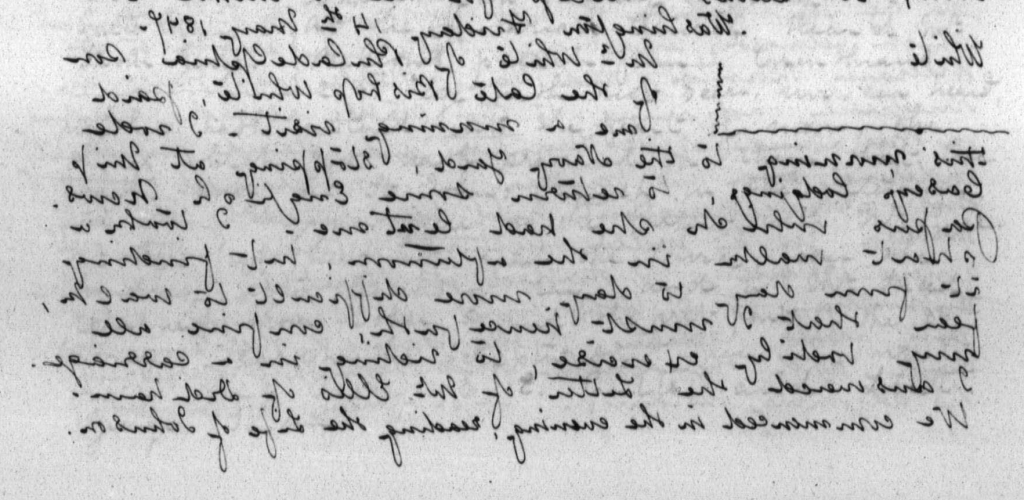 Washington. Friday, 14th May, 1847.
White
Mr White of Philadelphia son
of the late Bishop White, paid
me a morning visit. I rode
this morning to the Navy Yard, stopping at Mrs
lodging, to return some News.
Papers which she had lent me. I took a
short walk in the afternoon, but finding
it from day to day more difficult to walk,
feel that I must henceforth confine all
my bodily exercise, to riding in a carriage.
I answered the Letter of Mr Ellis of Dedham.
We commenced in the evening, reading the Life of Johnson.